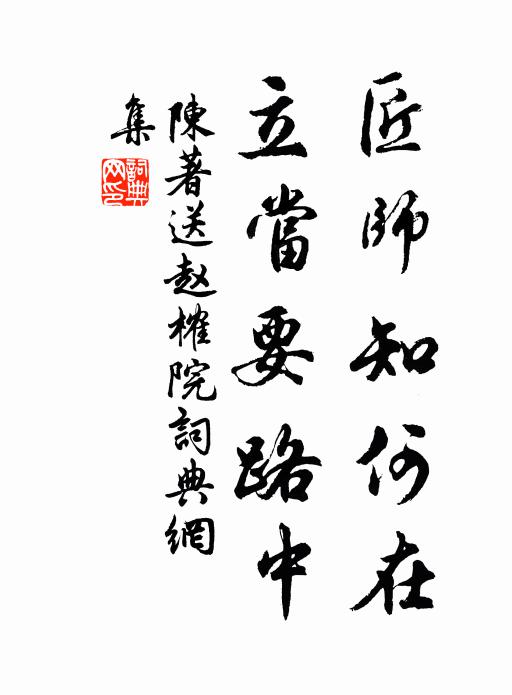 匠師知何在
立當要路中
陳著送赵榷院詞典網
集
詞典网印